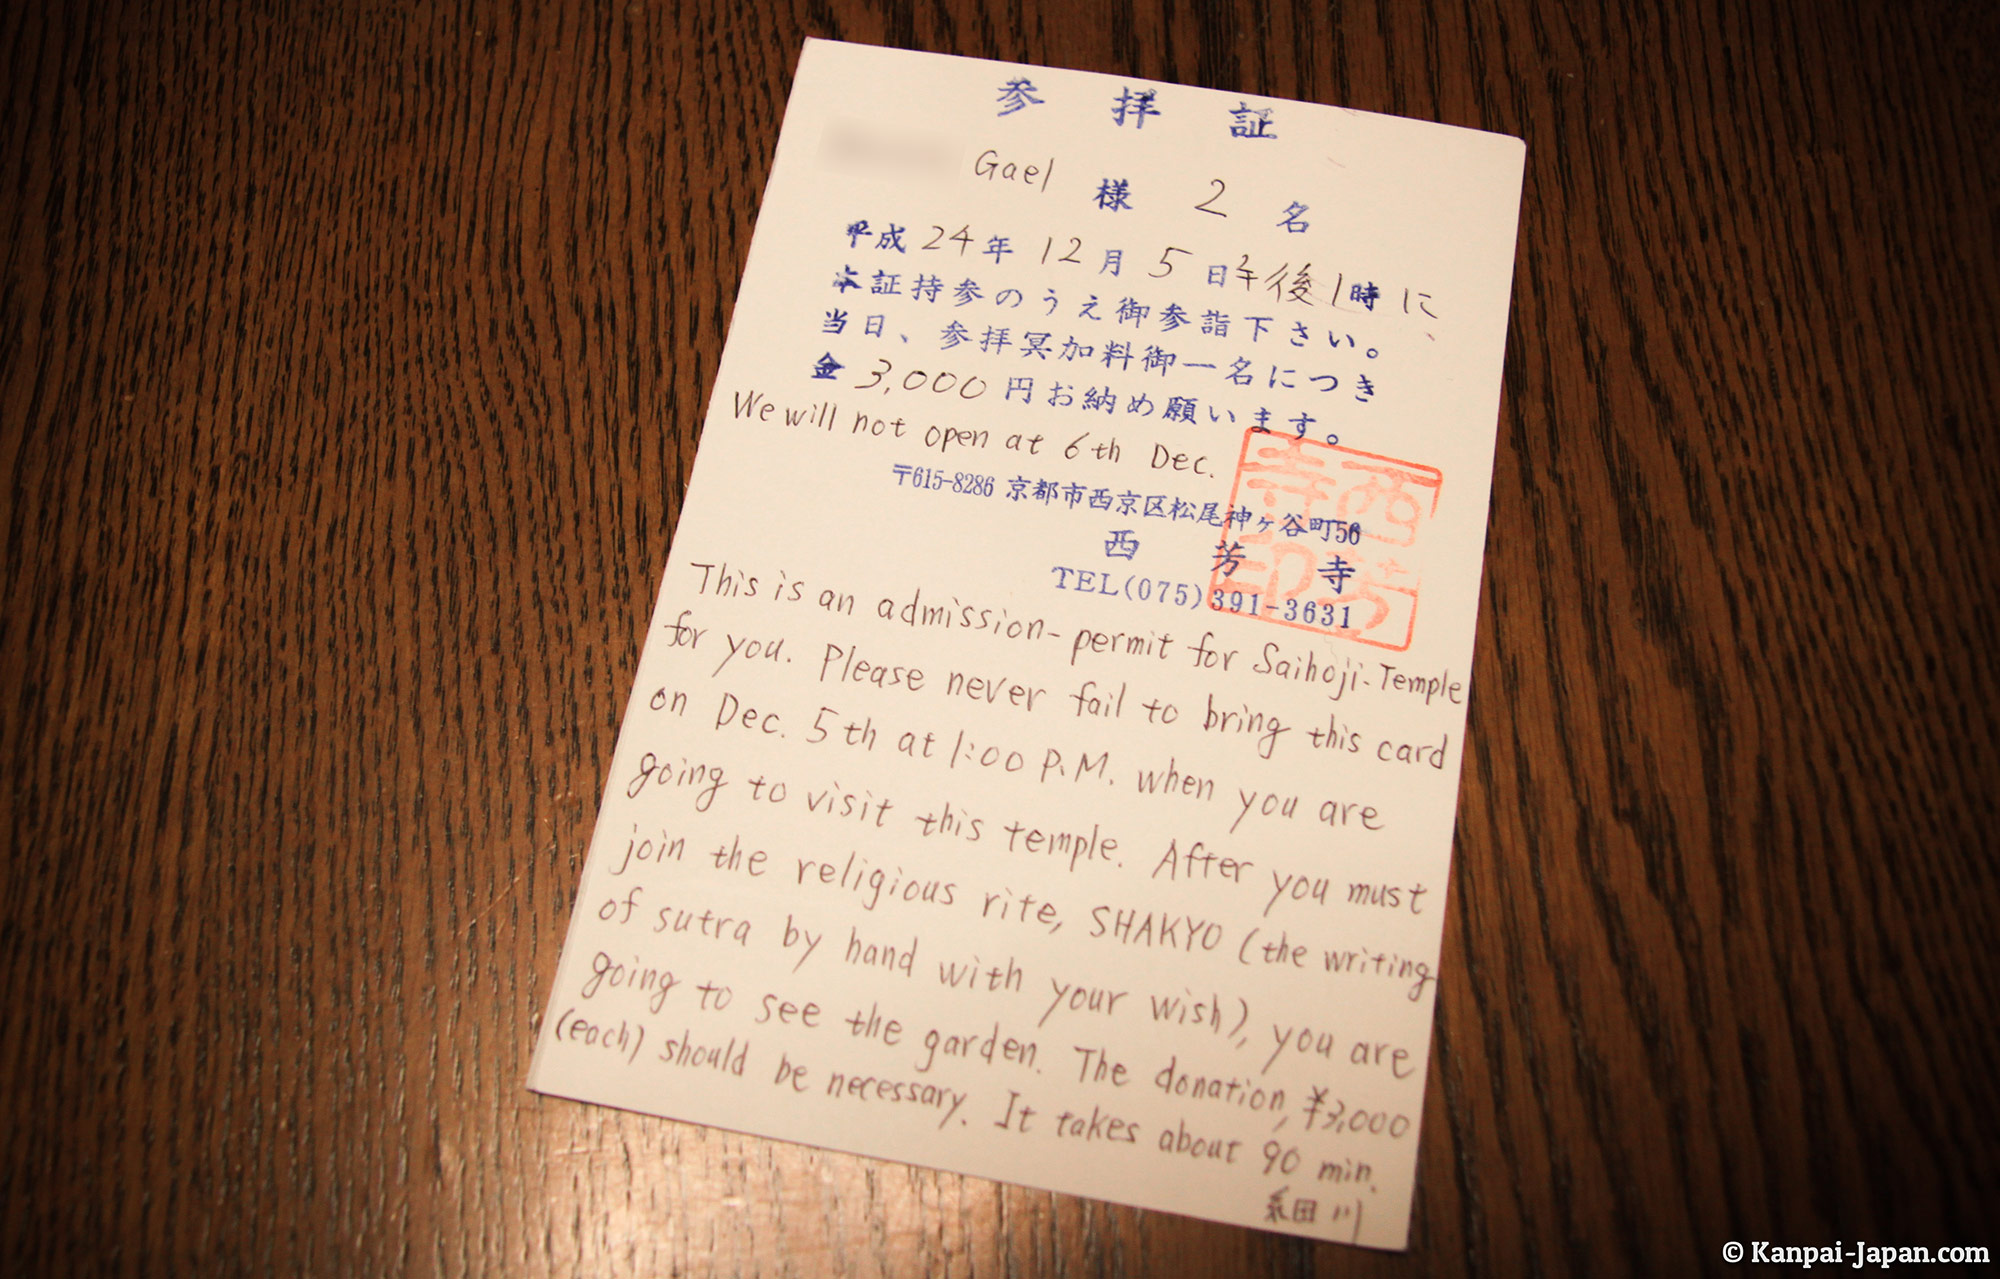 参拝証
Gael 様 2 名
平成 24 年 12 月 5 日 午後 1 時 に、
本証持参のうえ御参詣下さい。
当日、参拝冥加料御一名につき
金 3,000 円お納め願います。
We will not open at 6th Dec.
〒615-8286 京都市西京区松尾神ヶ谷町56
西芳寺
TEL(075)391-3631
西芳寺印
This is an admission-permit for Saihoji-Temple
for you. Please never fail to bring this card
on Dec. 5th at 1:00 P.M. when you are
going to visit this temple. After you must
join the religious rite, SHAKYO (the writing
of sutra by hand with your wish), you are
going to see the garden. The donation, ¥3,000
(each) should be necessary. It takes about 90 min.
© Kanpai-Japan.com